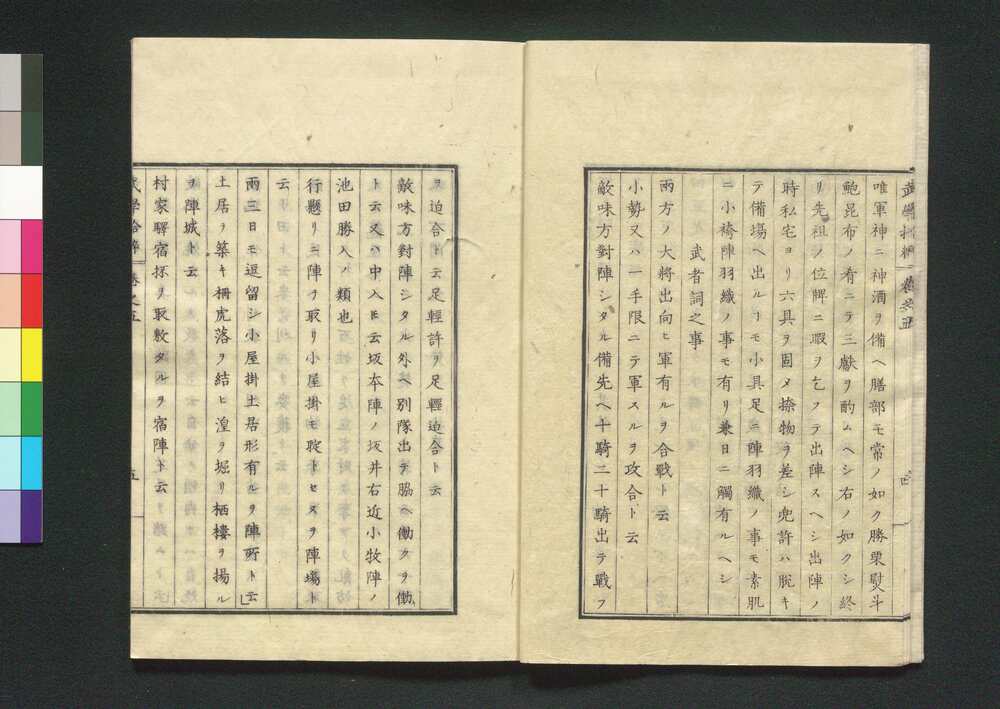 唯軍神ニ神酒ヲ備ヘ膳部モ常ノ如ク勝栗熨斗
鮑昆布ノ肴ニテ三獻ヲ酌ムヘシ右ノ如クシ終
リ先祖ノ位牌ニ暇ヲ乞フテ出陣スヘシ出陣ノ
時私宅ヨリ六具ヲ固メ捺物ヲ差シ兜許ハ脱キ
テ備塲ヘ出ルヿモ小具足ニ陣羽織ノ事モ素肌
ニ小袴陣羽織ノ事モ有リ兼日ニ觸有ルヘシ
武者詞之事
兩方ノ大將出向ヒ軍有ルヲ合戰ト云
小勢又ハ一手限ニテ軍スルヲ攻合ト云
敵味方對陣シタル備先ヘ十騎二十騎出テ戰フ
四
ヲ迫合ト云足輕許ヲ足輕迫合ト云
敵味方對陣シタル外ヘ別隊出テ脇ヘ働クヲ働
ト云又ハ中入ヒ云坂本陣ノ坂井右近小牧陣ノ
池田勝入ノ類也
行懸リニ陣ヲ取リ小屋掛モ聢トセスヲ陣塲ト
云
兩三日モ逗留シ小屋掛土居形有ルヲ陣所ト云
土居ヲ築キ柵虎落ヲ結ヒ湟ヲ堀リ栖樓ヲ揚ル
ヲ陣城ト云
村家驛宿抔ヲ取敷タルヲ宿陣ト云
五